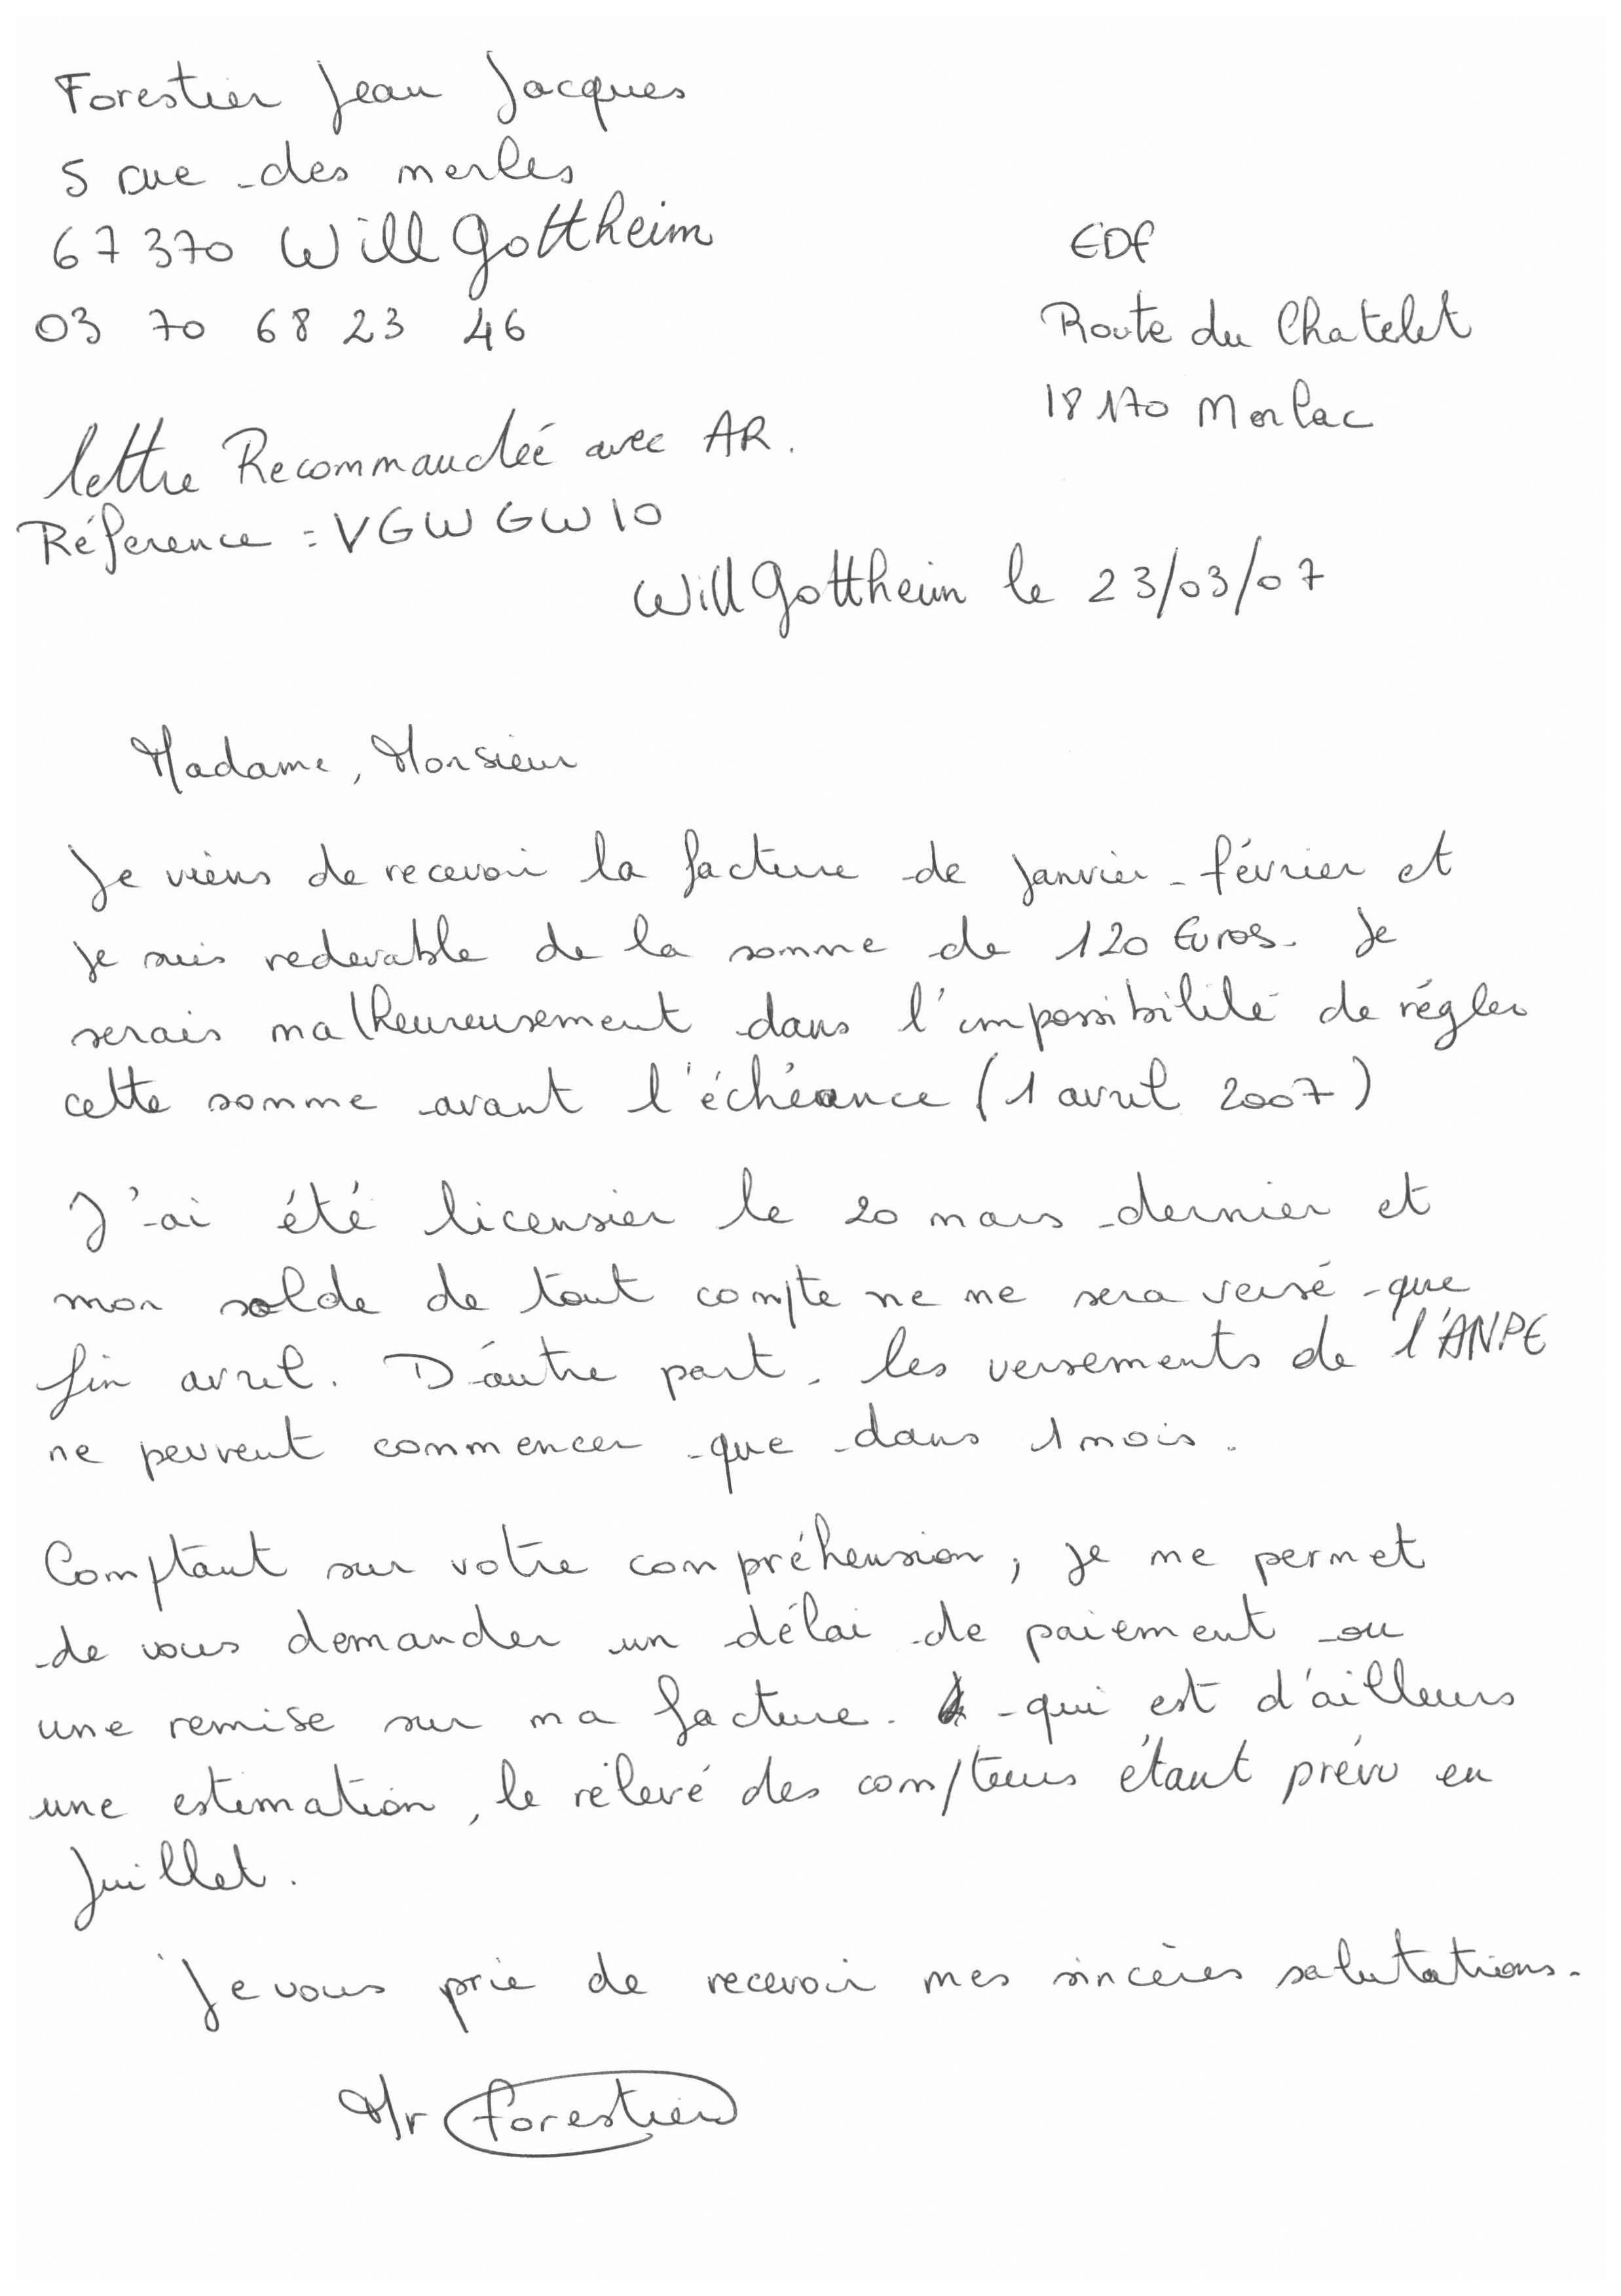 Forestier Jean Jacques
5 rue des merles
67370 WillGottheim
03 70 68 23 46
EDF
Route du Chatelet
18170 Morlac
lettre Recommandée avec AR.
Réference : VGWGW10
WillGottheim le 23/03/07
Madame, Monsieur
Je viens de recevoir la facture de Janvier-février et
je suis redevable de la somme de 120 Euros. Je
serais malheureusement dans l'impossibilité de régler
cette somme avant l'échéance (1 avril 2007)
J'ai été licensier le 20 mars dernier et
mon solde de tout compte ne me sera versé que
fin avril. D'autre part, les versements de l'ANPE
ne peuvent commencer que dans 1 mois.
Comptant sur votre compréhension, je me permet
de vous demander un délai de paiement ou
une remise sur ma facture. qui est d'ailleurs
une estimation, le rélevé des compteurs étant prévu en
Juillet.
Je vous prie de recevoir mes sincères salutations.
Mr Forestier